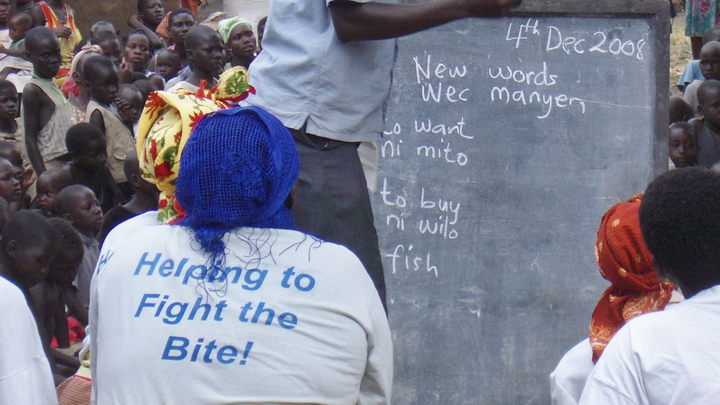 4th Dec 2008
New words
Wec manyen
to want
ni mito
to buy
ni wilo
fish
Helping to
Fight the
Bite!